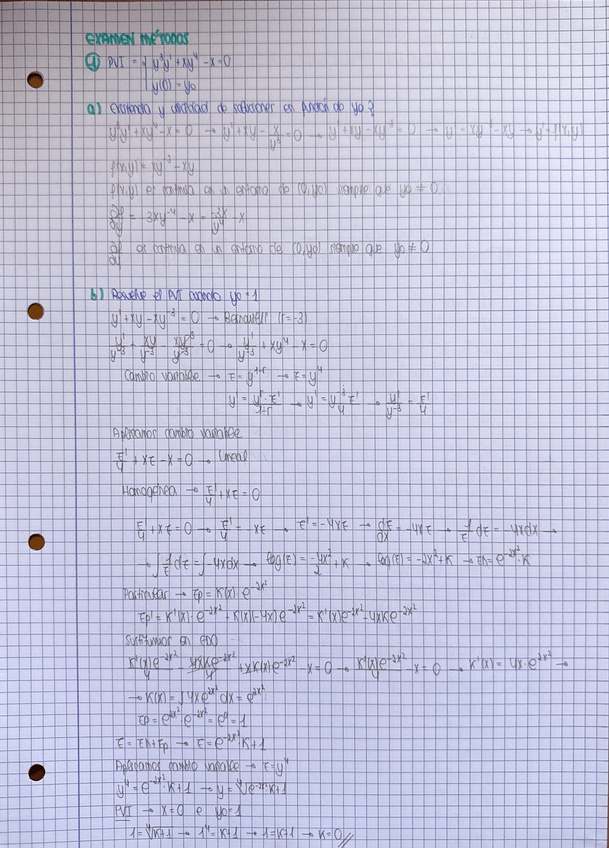 EXAMEN MÉTODOS
① PVI = { y³y' + xy⁴ - x = 0
y(0) = y₀
a) Existencia y unicidad de soluciones en función de y₀?
y³y' + xy⁴ - x = 0 → y' + xy - x/y³ = 0 → y' + xy - xy⁻³ = 0 → y' = xy⁻³ - xy → y' = f(x,y)
f(x,y) = xy⁻³ - xy
f(x,y) es continua en un entorno de (0,y₀) siempre que y₀ ≠ 0
∂f/∂y = -3xy⁻⁴ - x = -3x/y⁴ - x
∂f/∂y es continua en un entorno de (0,y₀) siempre que y₀ ≠ 0
b) Resuelve el PVI cuando y₀ = 1
y' + xy - xy⁻³ = 0 → Bernoulli (r=-3)
y'/y⁻³ + xy/y⁻³ - xy⁻³/y⁻³ = 0 → y'/y⁻³ + xy⁴ - x = 0
Cambio variable → z = y¹⁻ʳ → z = y⁴
y' = yʳ·z'/1-r → y' = y⁻³z'/4 → y'/y⁻³ = z'/4
Aplicamos cambio variable
z'/4 + xz - x = 0 → Lineal
Homogénea → z'/4 + xz = 0
z'/4 + xz = 0 → z'/4 = -xz → z' = -4xz → dz/dx = -4xz → 1/z dz = -4xdx →
→ ∫1/z dz = ∫-4xdx → log(z) = -4x²/2 + K → log(z) = -2x² + K → zh = e⁻²ˣ²·K
Particular → zp = K(x)·e⁻²ˣ²
zp' = K'(x)·e⁻²ˣ² + K(x)(-4x)e⁻²ˣ² = K'(x)e⁻²ˣ² - 4xKe⁻²ˣ²
Sustituimos en EDO
K'(x)e⁻²ˣ²/4 - 4xKe⁻²ˣ²/4 + xK(x)e⁻²ˣ² - x = 0 → K'(x)e⁻²ˣ²/4 - x = 0 → K'(x) = 4x·e²ˣ² →
→ K(x) = ∫4xe²ˣ²dx = e²ˣ²
zp = e²ˣ²·e⁻²ˣ² = e⁰ = 1
z = zh + zp → z = e⁻²ˣ²K + 1
Aplicamos cambio variable → z = y⁴
y⁴ = e⁻²ˣ²·K + 1 → y = ⁴√e⁻²ˣ²·K + 1
PVI → x = 0 e y₀ = 1
1 = ⁴√K+1 → 1⁴ = K+1 → 1 = K+1 → K = 0 //